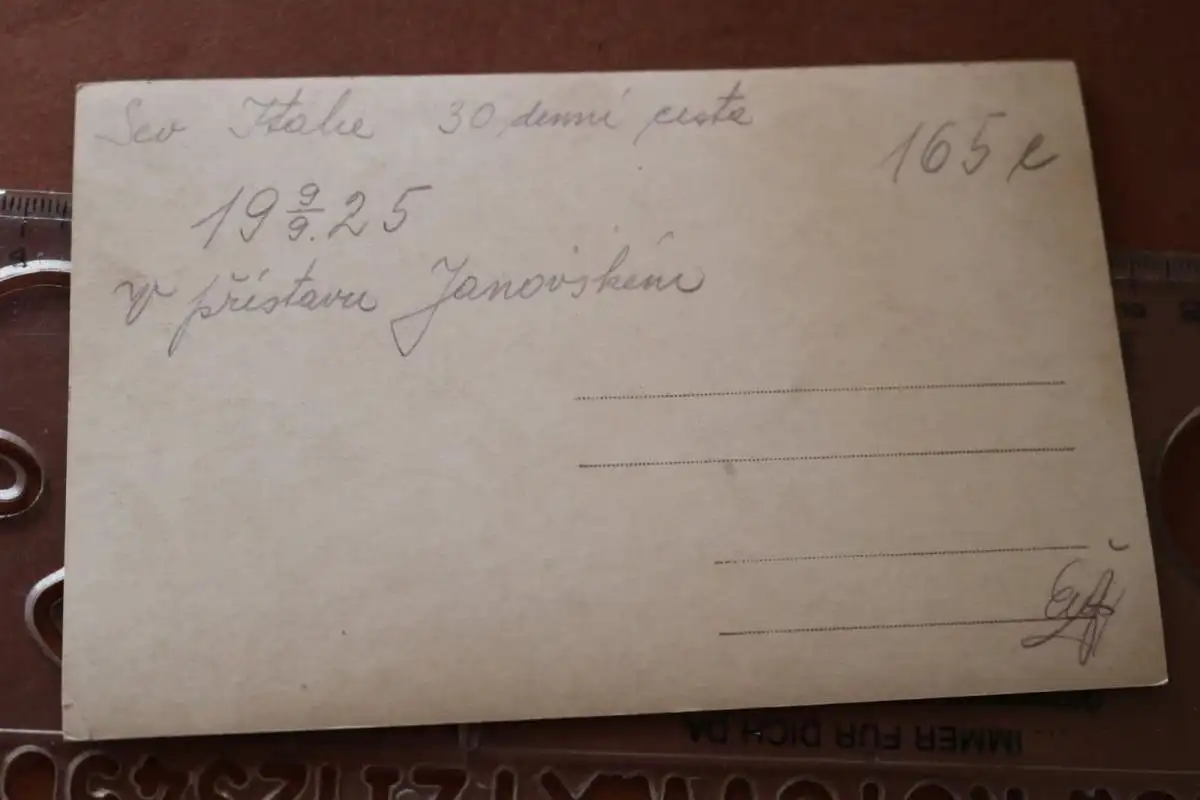 Sev Italie 30 denní cesta
165 c
19 9/9. 25
v přístavu Janovském
IMMER FÜR DICH DA